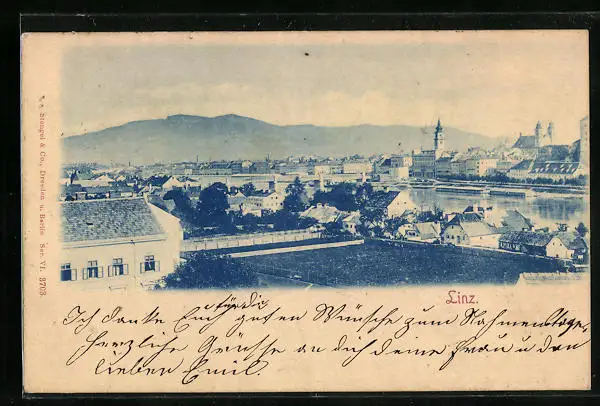 Stengel & Co., Dresden u. Berlin Ser. VI. 3703
Linz.
für die
Ich danke Euch guten Wünsche zum Namenstage,
herzliche Grüsse an dich deine Frau u den
lieben Emil.